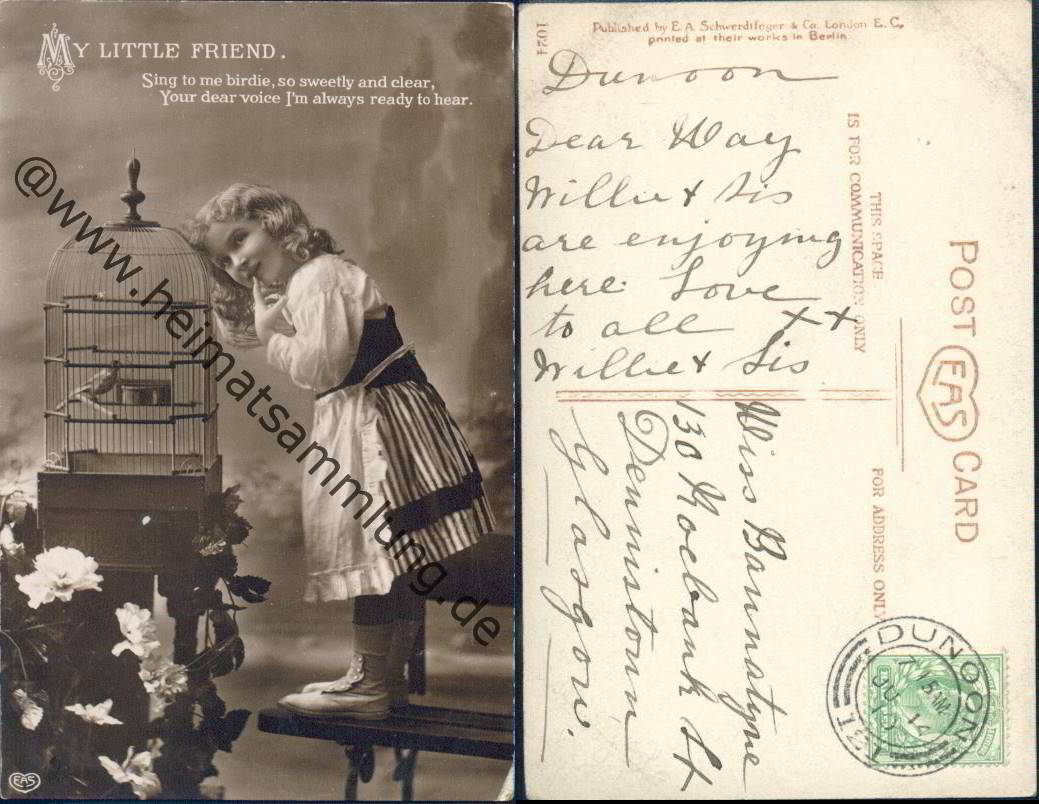 MY LITTLE FRIEND.
Sing to me birdie, so sweetly and clear,
Your dear voice I'm always ready to hear.
@www.heimatsammlung.de
EAS
1024
Published by E. A. Schwerdtfeger & Co. London E. C,
printed at their works in Berlin
Dunoon
Dear May
Willie & Sis
are enjoying
here. Love
to all ××
Willie & Sis
THIS SPACE
IS FOR COMMUNICATION ONLY
POST EAS CARD
FOR ADDRESS ONLY
Miss Bannatyne
130 Roebank St
Dennistoun
Glasgow.
DUNOON
121